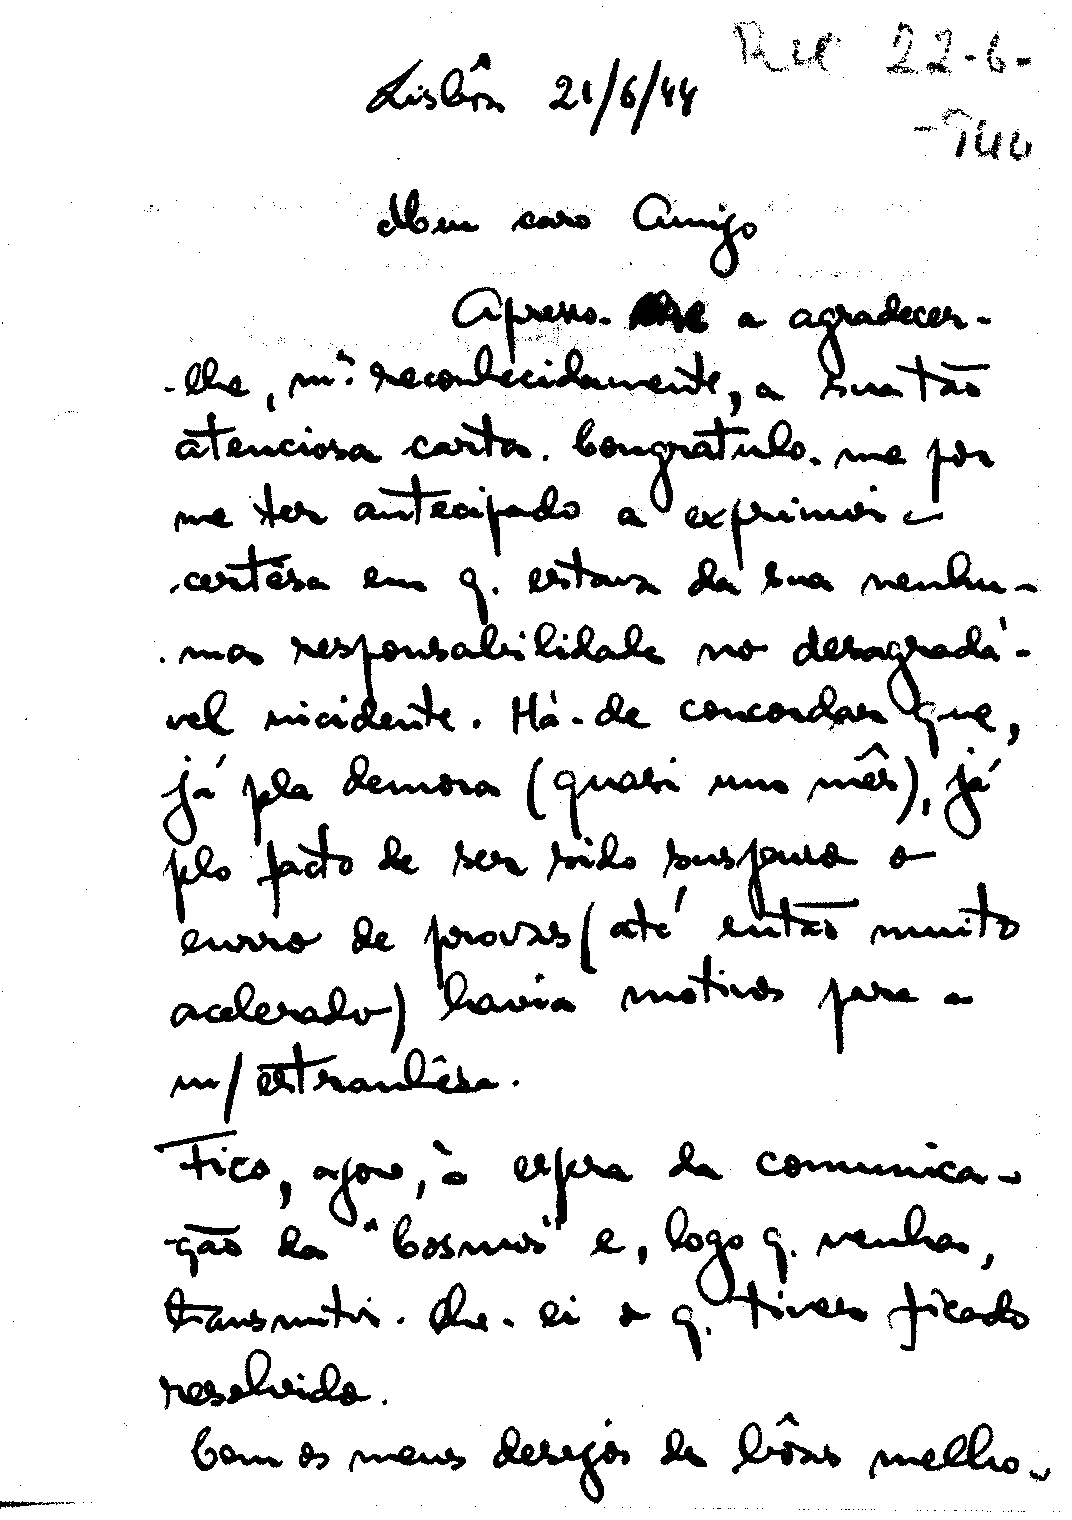 Rec 22-6-
-944
Lisbôa 21/6/44
Meu caro Amigo
Apresso-me a agradecer-
-lhe, mº reconhecidamente, a sua tão
atenciosa carta. Congratulo-me por
me ter antecipado a exprimir a
certêsa em q. estava da sua nenhu-
-ma responsabilidade no desagradá-
vel incidente. Há-de concordar que,
já pla demora (quasi um mês), já
plo facto de ser sido suspenso o
envio de provas (até então muito
acelerado) havia motivos para a
m/ estranhêsa.
Fico, agora, à espera da comunica-
-ção da "Cosmos" e, logo q. venha,
transmitir-lhe-ei o q. tiver ficado
resolvido.
Com os meus desejos de bôas melho-